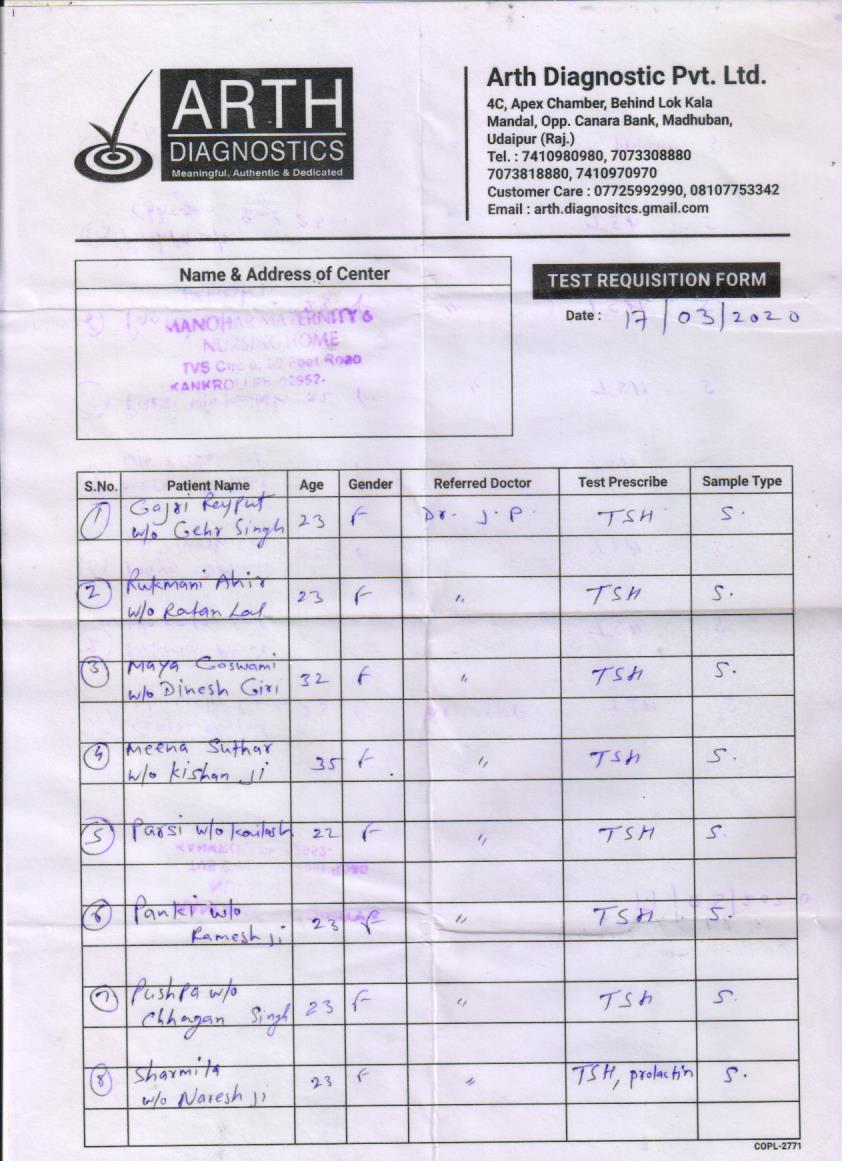 ARTH
DIAGNOSTICS
Meaningful, Authentic & Dedicated
Arth Diagnostic Pvt. Ltd.
4C, Apex Chamber, Behind Lok Kala
Mandal, Opp. Canara Bank, Madhuban,
Udaipur (Raj.)
Tel. : 7410980980, 7073308880
7073818880, 7410970970
Customer Care : 07725992990, 08107753342
Email : arth.diagnositcs.gmail.com
Name & Address of Center
MANOHAR MATERNITY &
NURSING HOME
TVS Feet Road
KANKROLI 02952-
TEST REQUISITION FORM
Date : 17/03/2020
S.No. Patient Name Age Gender Referred Doctor Test Prescribe Sample Type
1 Gajri Rajput 23 F Dr. J. P. TSH S.
w/o Gehr Singh
2 Rukmani Ahir 23 F " TSH S.
w/o Ratan Lal
3 Maya Goswami 32 F " TSH S.
w/o Dinesh Giri
4 Meena Suthar 35 F " TSH S.
w/o Kishan Ji
5 Parsi w/o Kailash 22 F " TSH S.
6 Panki w/o 23 F " TSH S.
Ramesh Ji
7 Pushpa w/o 23 F " TSH S.
Chhagan Singh
8 Sharmita 23 F " TSH, prolactin S.
w/o Naresh Ji
COPL-2771